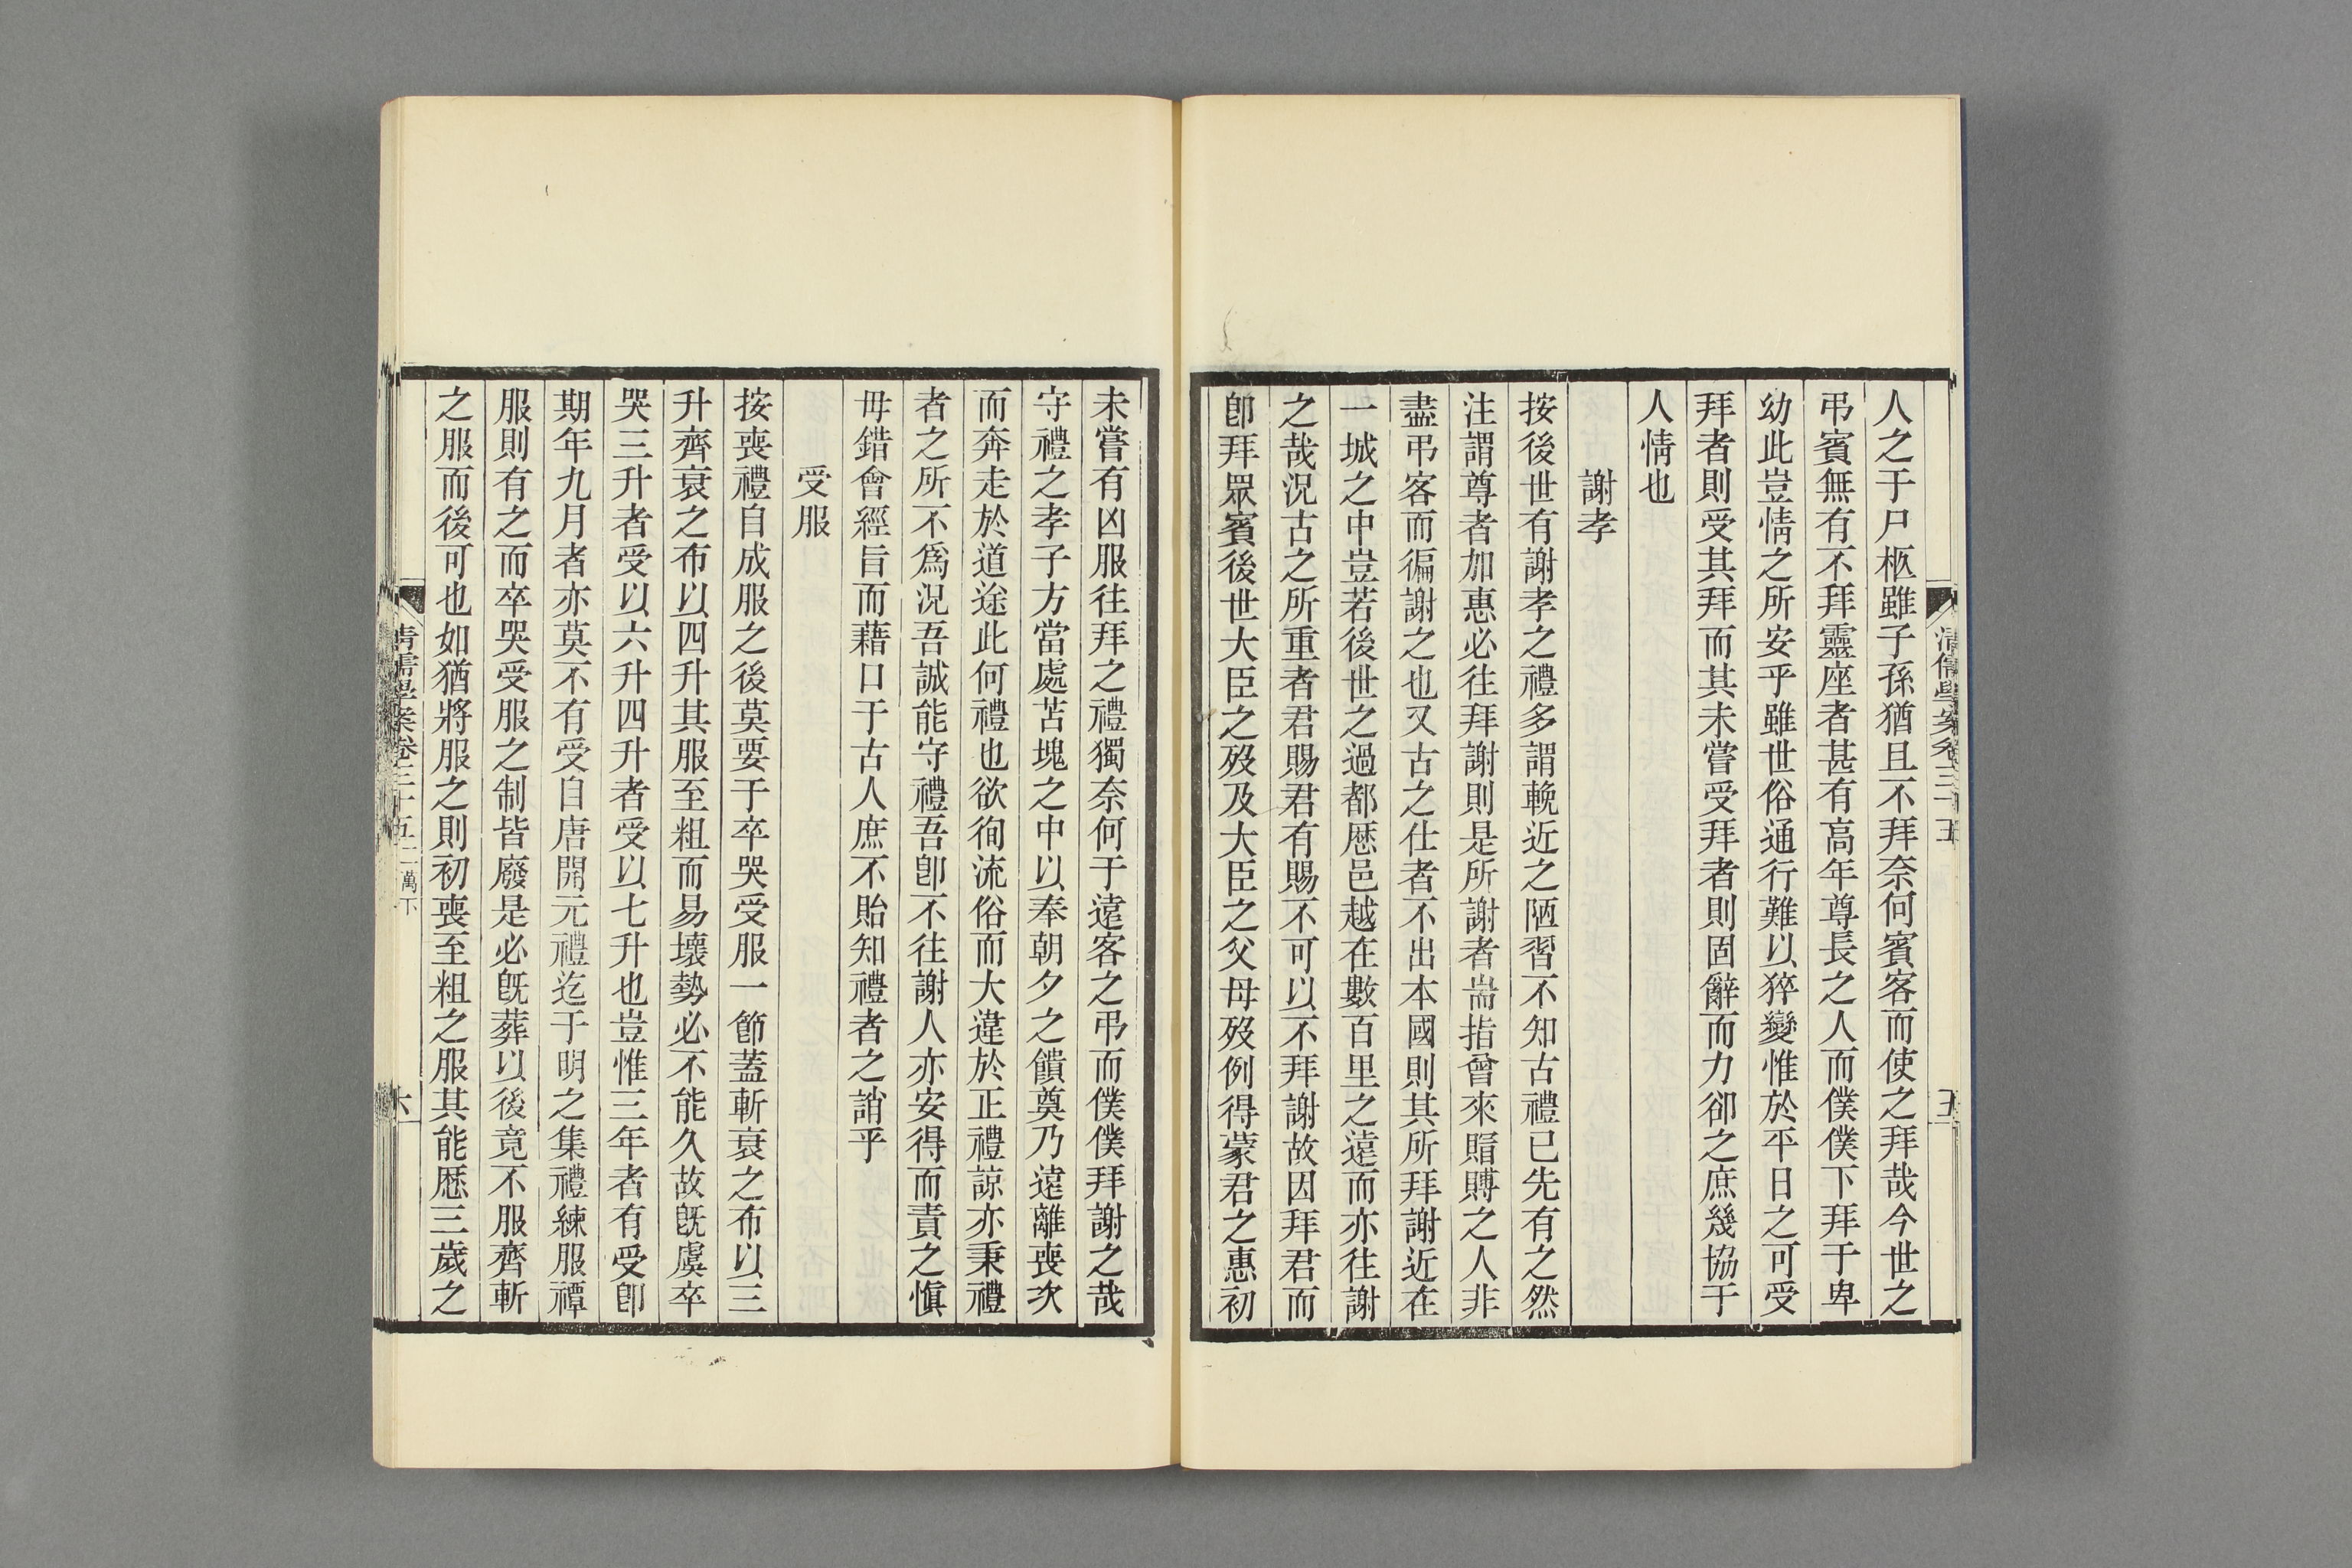 人之于尸柩雖子孫猶且不拜奈何賓客而使之拜哉今世之
弔賓無有不拜靈座者甚有高年尊長之人而僕僕下拜于卑
幼此豈情之所安乎雖世俗通行難以猝變惟於平日之可受
拜者則受其拜而其未嘗受拜者則固辭而力卻之庶幾協于
人情也
謝孝
按後世有謝孝之禮多謂輓近之陋習不知古禮已先有之然
注謂尊者加惠必往拜謝則是所謝者耑指曾來賵賻之人非
盡弔客而徧謝之也又古之仕者不出本國則其所拜謝近在
一城之中豈若後世之過都歷邑越在數百里之遠而亦往謝
之哉況古之所重者君賜君有賜不可以不拜謝故因拜君而
卽拜眾賓後世大臣之歿及大臣之父母歿例得蒙君之惠初
清儒學案卷三十五
五
未嘗有凶服往拜之禮獨奈何于遠客之弔而僕僕拜謝之哉
守禮之孝子方當處苫塊之中以奉朝夕之饋奠乃遠離喪次
而奔走於道途此何禮也欲徇流俗而大違於正禮諒亦秉禮
者之所不爲況吾誠能守禮吾卽不往謝人亦安得而責之愼
毋錯會經旨而藉口于古人庶不貽知禮者之誚乎
受服
按喪禮自成服之後莫要于卒哭受服一節蓋斬衰之布以三
升齊衰之布以四升其服至粗而易壞勢必不能久故旣虞卒
哭三升者受以六升四升者受以七升也豈惟三年者有受卽
期年九月者亦莫不有受自唐開元禮迄于明之集禮練服禫
服則有之而卒哭受服之制皆廢是必旣葬以後竟不服齊斬
之服而後可也如猶將服之則初喪至粗之服其能歷三歲之
清儒學案卷三十五 二萬下
六